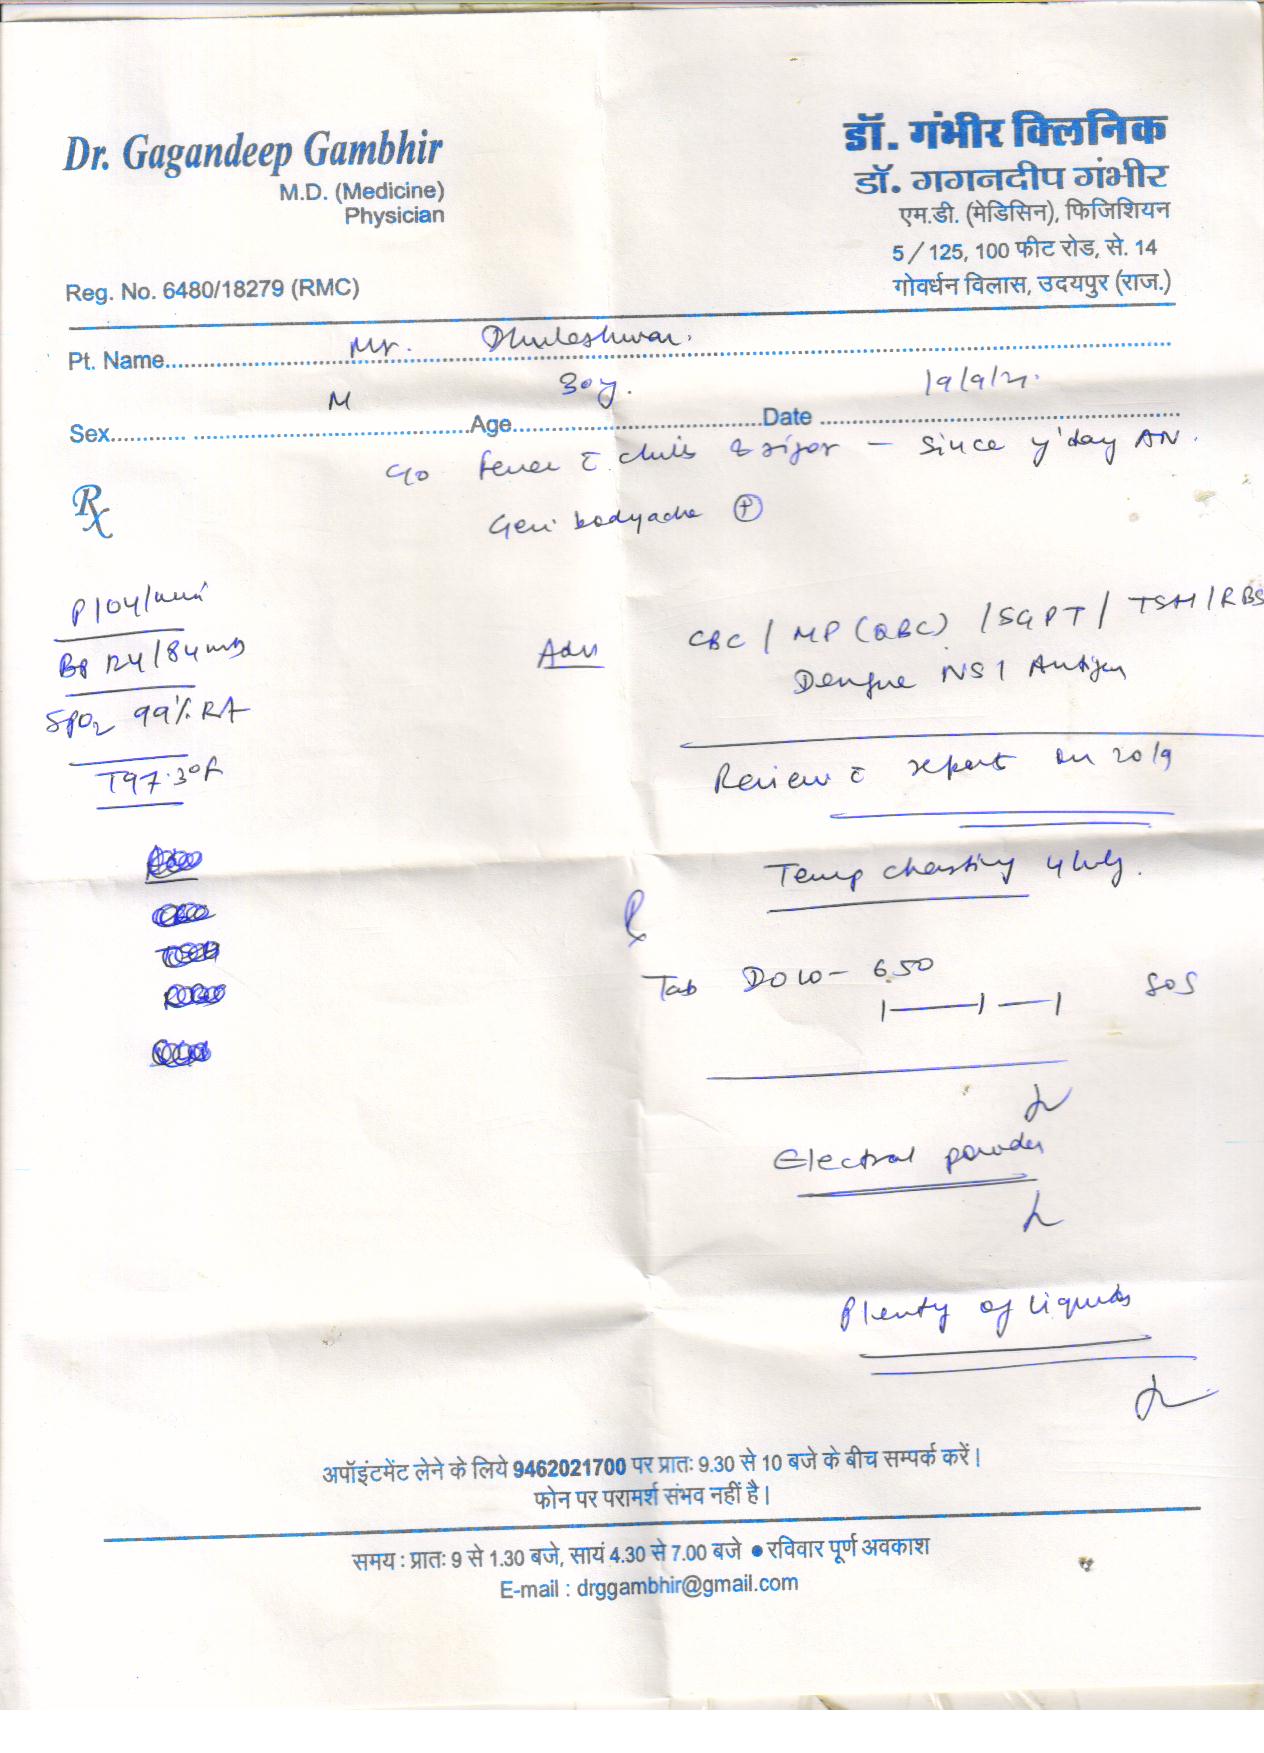 Dr. Gagandeep Gambhir
M.D. (Medicine)
Physician
Reg. No. 6480/18279 (RMC)
डॉ. गंभीर क्लिनिक
डॉ. गगनदीप गंभीर
एम.डी. (मेडिसिन), फिजिशियन
5 / 125, 100 फीट रोड, से. 14
गोवर्धन विलास, उदयपुर (राज.)
Pt. Name Mr. Dhuleshwar.
Sex M Age 30y. Date 19/9/21.
c/o fever c̄ chills & rigor — since y'day AN.
Rx
Gen. bodyache ⊕
P 104/min
BP 124/84 mmg
SpO2 99% RA
T 97.3°F
Adv CBC / MP (QBC) / SGPT / TSH / RBS
Dengue NS1 Antigen
Review c̄ report on 20/9
Temp charting 4 hrly.
Rx
Tab DOLO-650 SOS
1—1—1
Electral powder
Plenty of liquids
अपॉइंटमेंट लेने के लिये 9462021700 पर प्रातः 9.30 से 10 बजे के बीच सम्पर्क करें।
फोन पर परामर्श संभव नहीं है।
समय : प्रातः 9 से 1.30 बजे, सायं 4.30 से 7.00 बजे ● रविवार पूर्ण अवकाश
E-mail : drggambhir@gmail.com